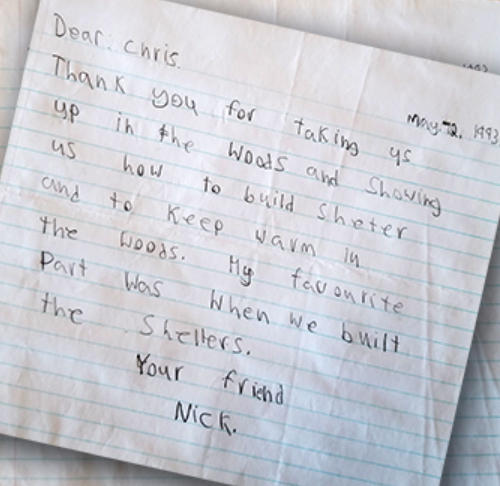 Dear. Chris.
May. 1993
Thank you for taking us
up in the woods and showing
us how to build sheter
and to keep warm in
the woods. My favourite
Part was when we built
the Shelters.
Your friend
Nick.